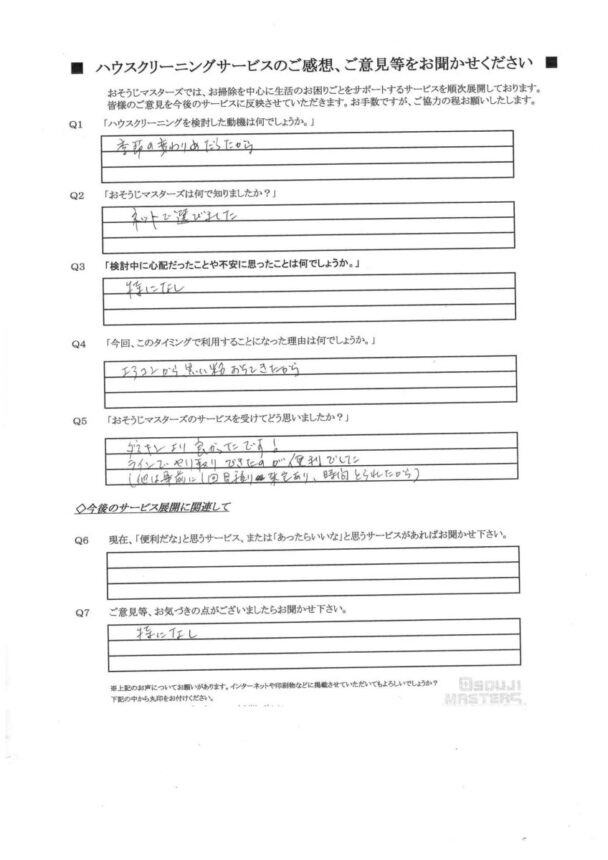 ■ ハウスクリーニングサービスのご感想、ご意見等をお聞かせください ■
おそうじマスターズでは、お掃除を中心に生活のお困りごとをサポートするサービスを順次展開しております。
皆様のご意見を今後のサービスに反映させていただきます。お手数ですが、ご協力の程お願いしたします。
Q1 「ハウスクリーニングを検討した動機は何でしょうか。」
季節の変わりめだったから
Q2 「おそうじマスターズは何で知りましたか？」
ネットで選びました
Q3 「検討中に心配だったことや不安に思ったことは何でしょうか。」
特になし
Q4 「今回、このタイミングで利用することになった理由は何でしょうか。」
エアコンから黒い粉おちてきたから
Q5 「おそうじマスターズのサービスを受けてどう思いましたか？」
ダスキンより良かったです！
ラインでやり取りできたのが便利でした
(他は事前に1回目積り 来宅あり、時間とられたから)
◇今後のサービス展開に関連して
Q6 現在、「便利だな」と思うサービス、または「あったらいいな」と思うサービスがあればお聞かせ下さい。
Q7 ご意見等、お気づきの点がございましたらお聞かせ下さい。
特になし
※上記のお声についてお願いがあります。インターネットや印刷物などに掲載させていただいてもよろしいでしょうか？
下記の中から丸印をお付けください。
OSOUJI
MASTERS